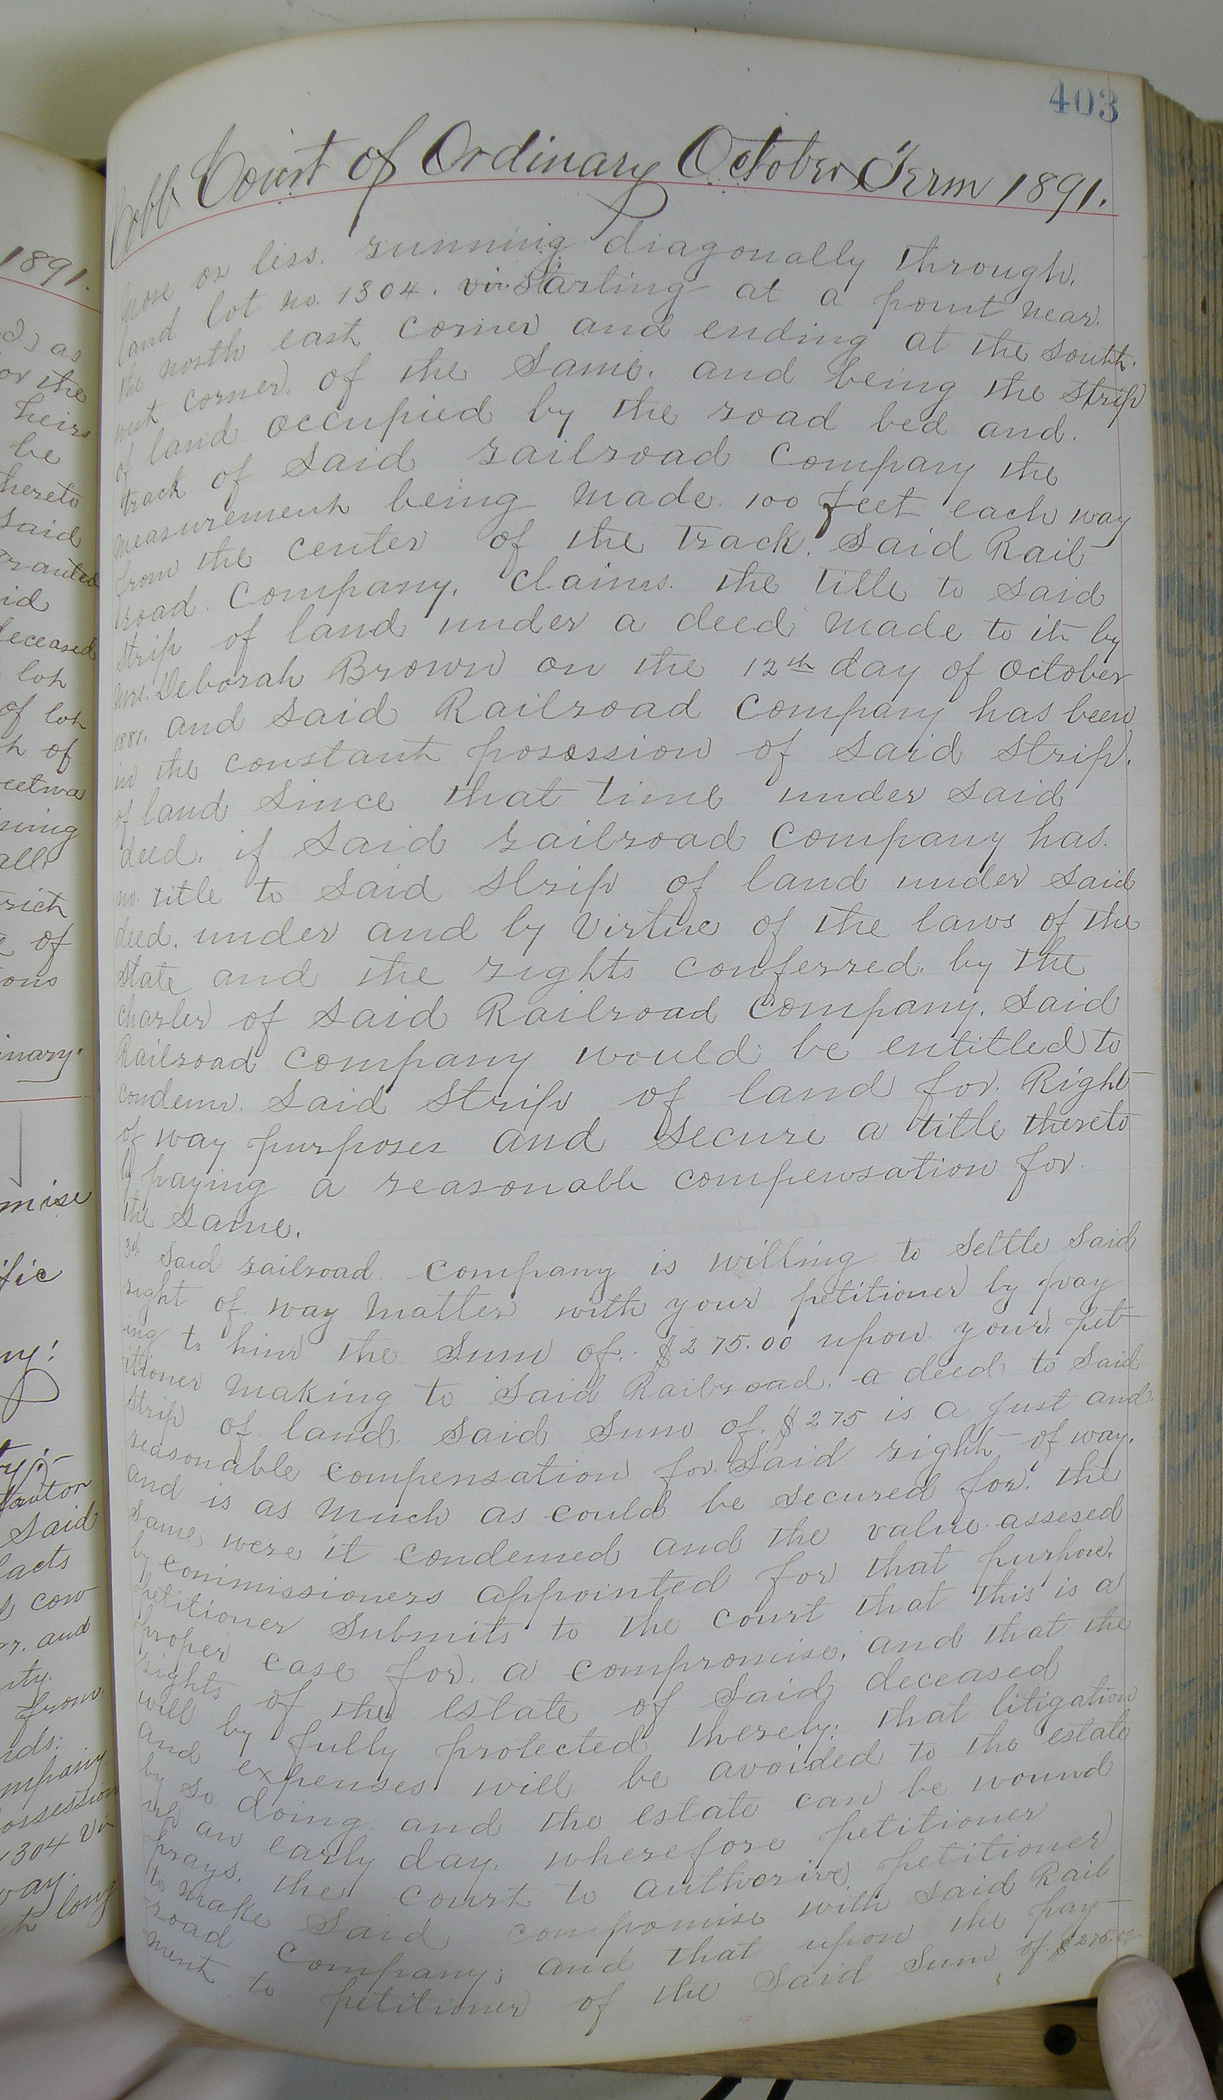 1891.
d) as
or the
heirs
be
hereto
said
ranted
id
deceased
lot
of lot
h of
wing
all
rich
e of
ions
inary.
mise
ific
ny!
ty:-
said
facts
& cow
and
ity.
from
rds:
mpany
ossession
1304 Vi
way
h long
403
Cobb Court of Ordinary October Term 1891.
more or less. running diagonally through.
land lot no. 1304. viz starting at a point near.
the north east corner and ending at the south.
west corner. of the same. and being the strip
of land occupied by the road bed and.
track of said railroad company the
measurement being made. 100 feet each way
from the center of the track. said Rail
road. company. claims. the title to said
strip of land under a deed made to it by
Mrs. Deborah Brown on the 12th day of October
1881. and said Railroad company has been
in the constant posession of said strip.
of land since that time under said
deed. if said railroad company has.
no. title to said strip of land under said
deed. under and by virtue of the laws of the
state and the rights conferred. by the
charter of said Railroad company. said
Railroad company would be entitled to
condemn. said strip of land for. Right
of way purposes and secure a title thereto
by paying a reasonable compensation for.
the same.
3d said railroad. company is willing to settle said
right of. way matter with your petitioner by pay
ing to him the sum of. $275.00 upon. your. pet
itioner making to said Railroad. a deed to said
strip of land. said sum of. $275 is a just and
reasonable compensation for. said right of way.
and is as much as could be secured for. the
same, were it condemed and the value assesed
by commissioners appointed for that purpose.
petitioner submits to the court that this is a
proper case for. a compromise. and that the
rights of the estate of said deceased
will by fully protected therely: that litigation
and expenses will be avoided to the estate
by so doing. and the estate can be wound
up an early day. wherefore petitioner
prays. the court to authorize petitioner
to make said compromise with said Rail
road company; and that upon the pay
ment to petitioner of the said sum of $275.00